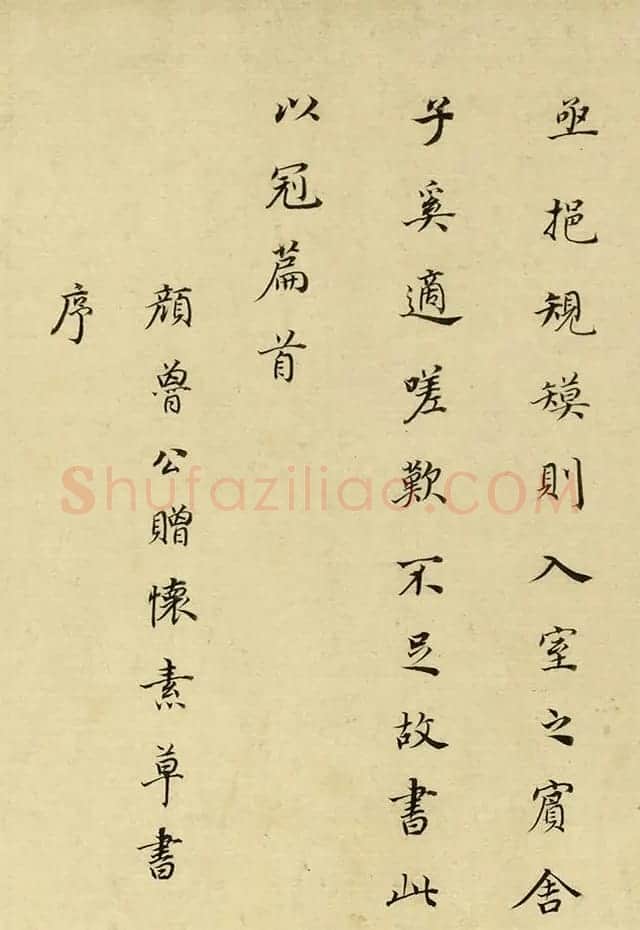 亟挹規模則入室之賓舍
子奚適嗟歎不足故書此
以冠篇首
顔魯公贈懷素草書
序
Shufaziliao.COM